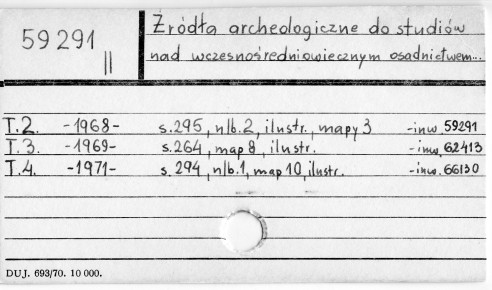 59291
II
Źródła archeologiczne do studiów
nad wczesnośredniowiecznym osadnictwem...
T.2. -1968- s.295, nlb.2, ilustr., mapy 3 -inw. 59291
T.3. -1969- s.264, map 8, ilustr. -inw. 62413
T.4. -1971- s.294, nlb.1, map 10, ilustr. -inw. 66130
DUJ. 693/70. 10 000.